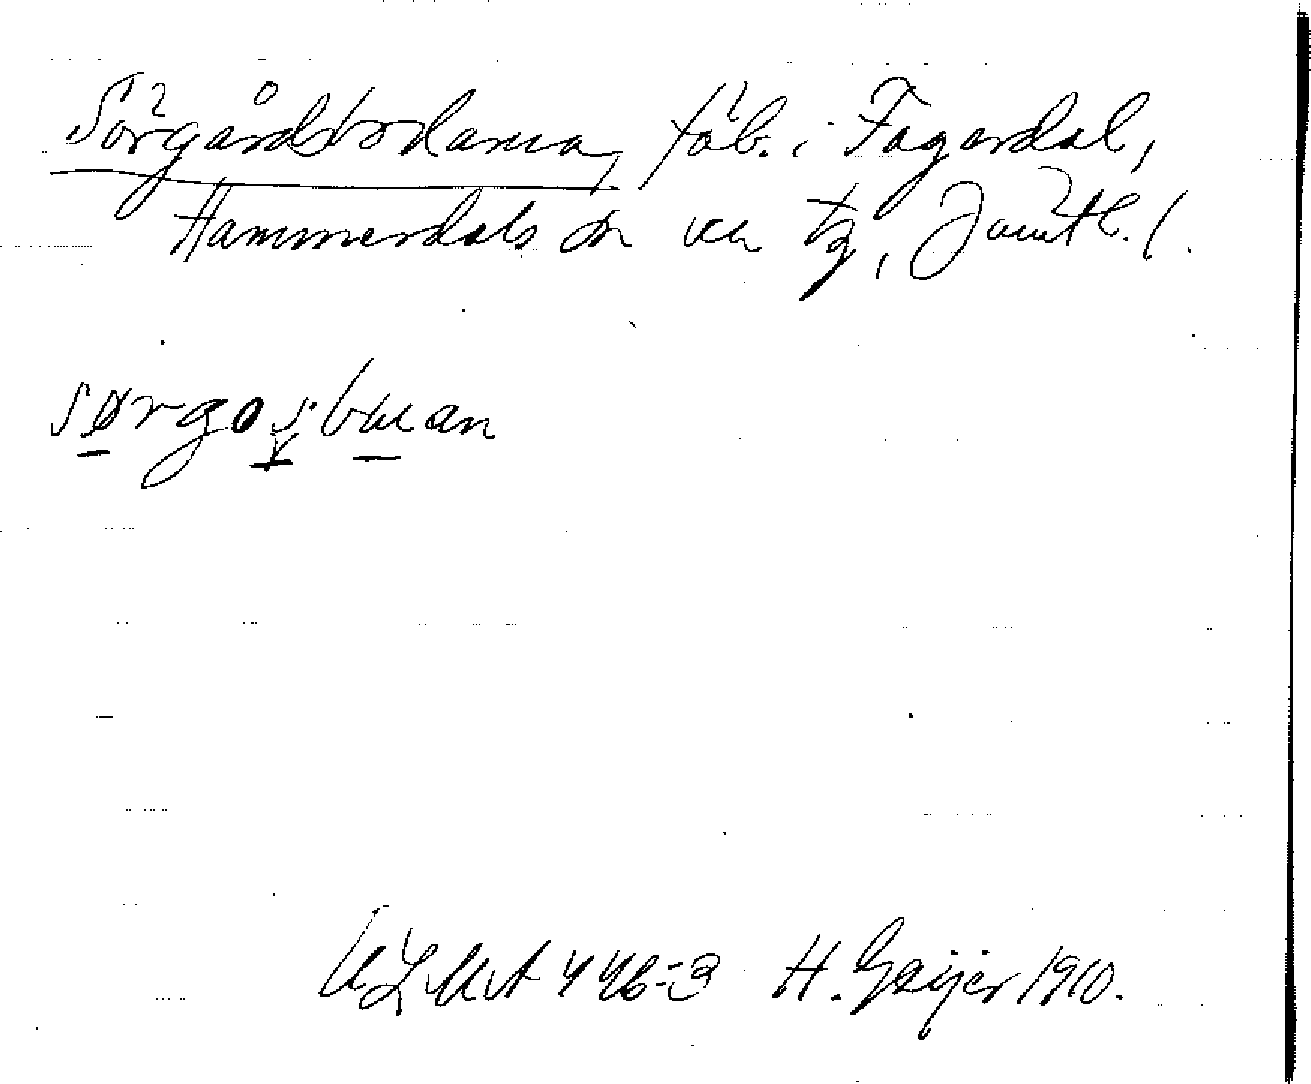 Sörgårdsbodarna, fäb. i Fagerdal,
Hammerdals sn och tg, Jämtl. l.
sørgosbuan
ULMA 446:3 H. Geijer 1910.